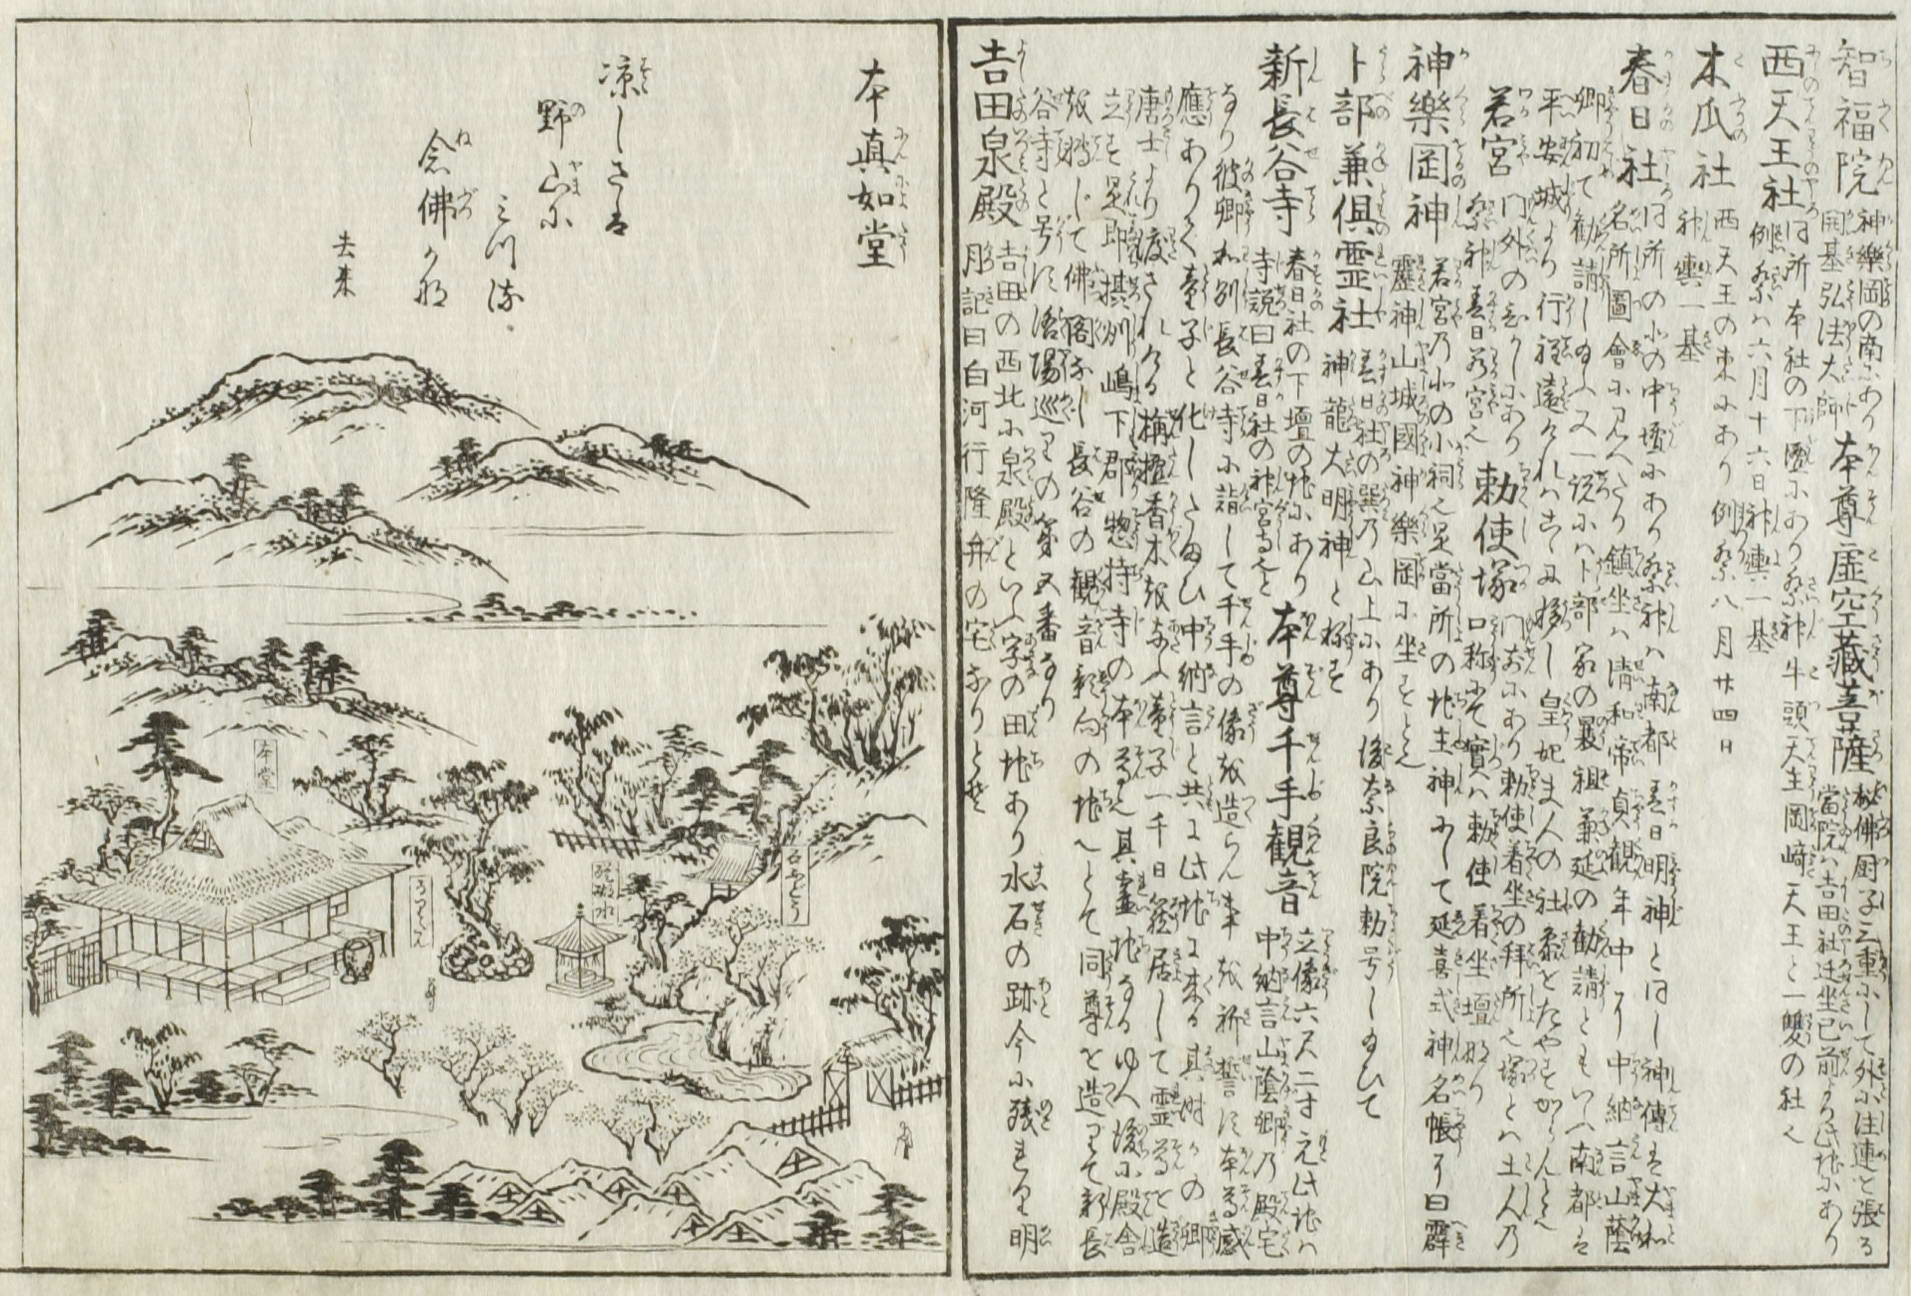 智福院 神樂岡の南にあり 本尊虚空藏菩薩 秘佛厨子三重にして外に注連を張る
開基弘法大師 當院ハ吉田社迁坐已前より此地にあり
西天王社 同所本社の下壇にあり祭神牛頭天王岡﨑天王と一雙の社也
例祭ハ六月十六日神輿一基
木瓜社 西天王の東にあり例祭八月廿四日
神輿一基
春日社 同所の北の中壇にあり祭神ハ南都春日明神と同し神傳は大和
名所圖會に見へたり鎮坐ハ清和帝貞觀年中に中納言山蔭
卿初て勧請し給ふ又一説にハト部家の曩祖兼延の勧請ともいへ南都は
平安城より行程遠けれハこゝに移し皇妃主人の社参をたやすからんと也
若宮 門外の にあり 勅使塚 門前にあり勅使着坐の拜所也塚とハ土人乃
祭神春日若宮也 口称にて實ハ勅使着坐壇なり
神樂岡神 若宮乃北の小祠也是當所の地主神にして延喜式神名帳に曰霹
靂神山城國神樂岡に坐すと云
卜部兼倶霊社 春日社の巽乃山上にあり後奈良院勅号し給ひて
神龍大明神と称す
新長谷寺 春日社の下壇の地にあり 本尊千手觀音 立像六尺二寸元此地ハ
寺説曰春日社の神宮寺也と 中納言山蔭卿乃殿宅
なり彼卿和州長谷寺に詣して千手の像を造らん事を祈誓す本尊感
應ありて童子と化したまひ中納言と共に此地に来る其時かの卿
唐土より渡されける栴檀香木を あたふ童子一千日籠居して霊尊を造
立す是即摂州嶋下郡惣持寺の本尊也其靈地なるゆへ後に殿舎
を 轉じて佛閣なし長谷の觀音影向の地也とて同尊を造りて新長
谷寺と号す洛陽巡りの第五番なり
吉田泉殿 吉田の西北に泉殿といふ字の田地あり水石の跡今に残れり明
月記曰白河行隆舟の宅なりとぞ
本真如堂
涼しさは
野山に
みつる
念佛かな
去来
本堂
石ふどう